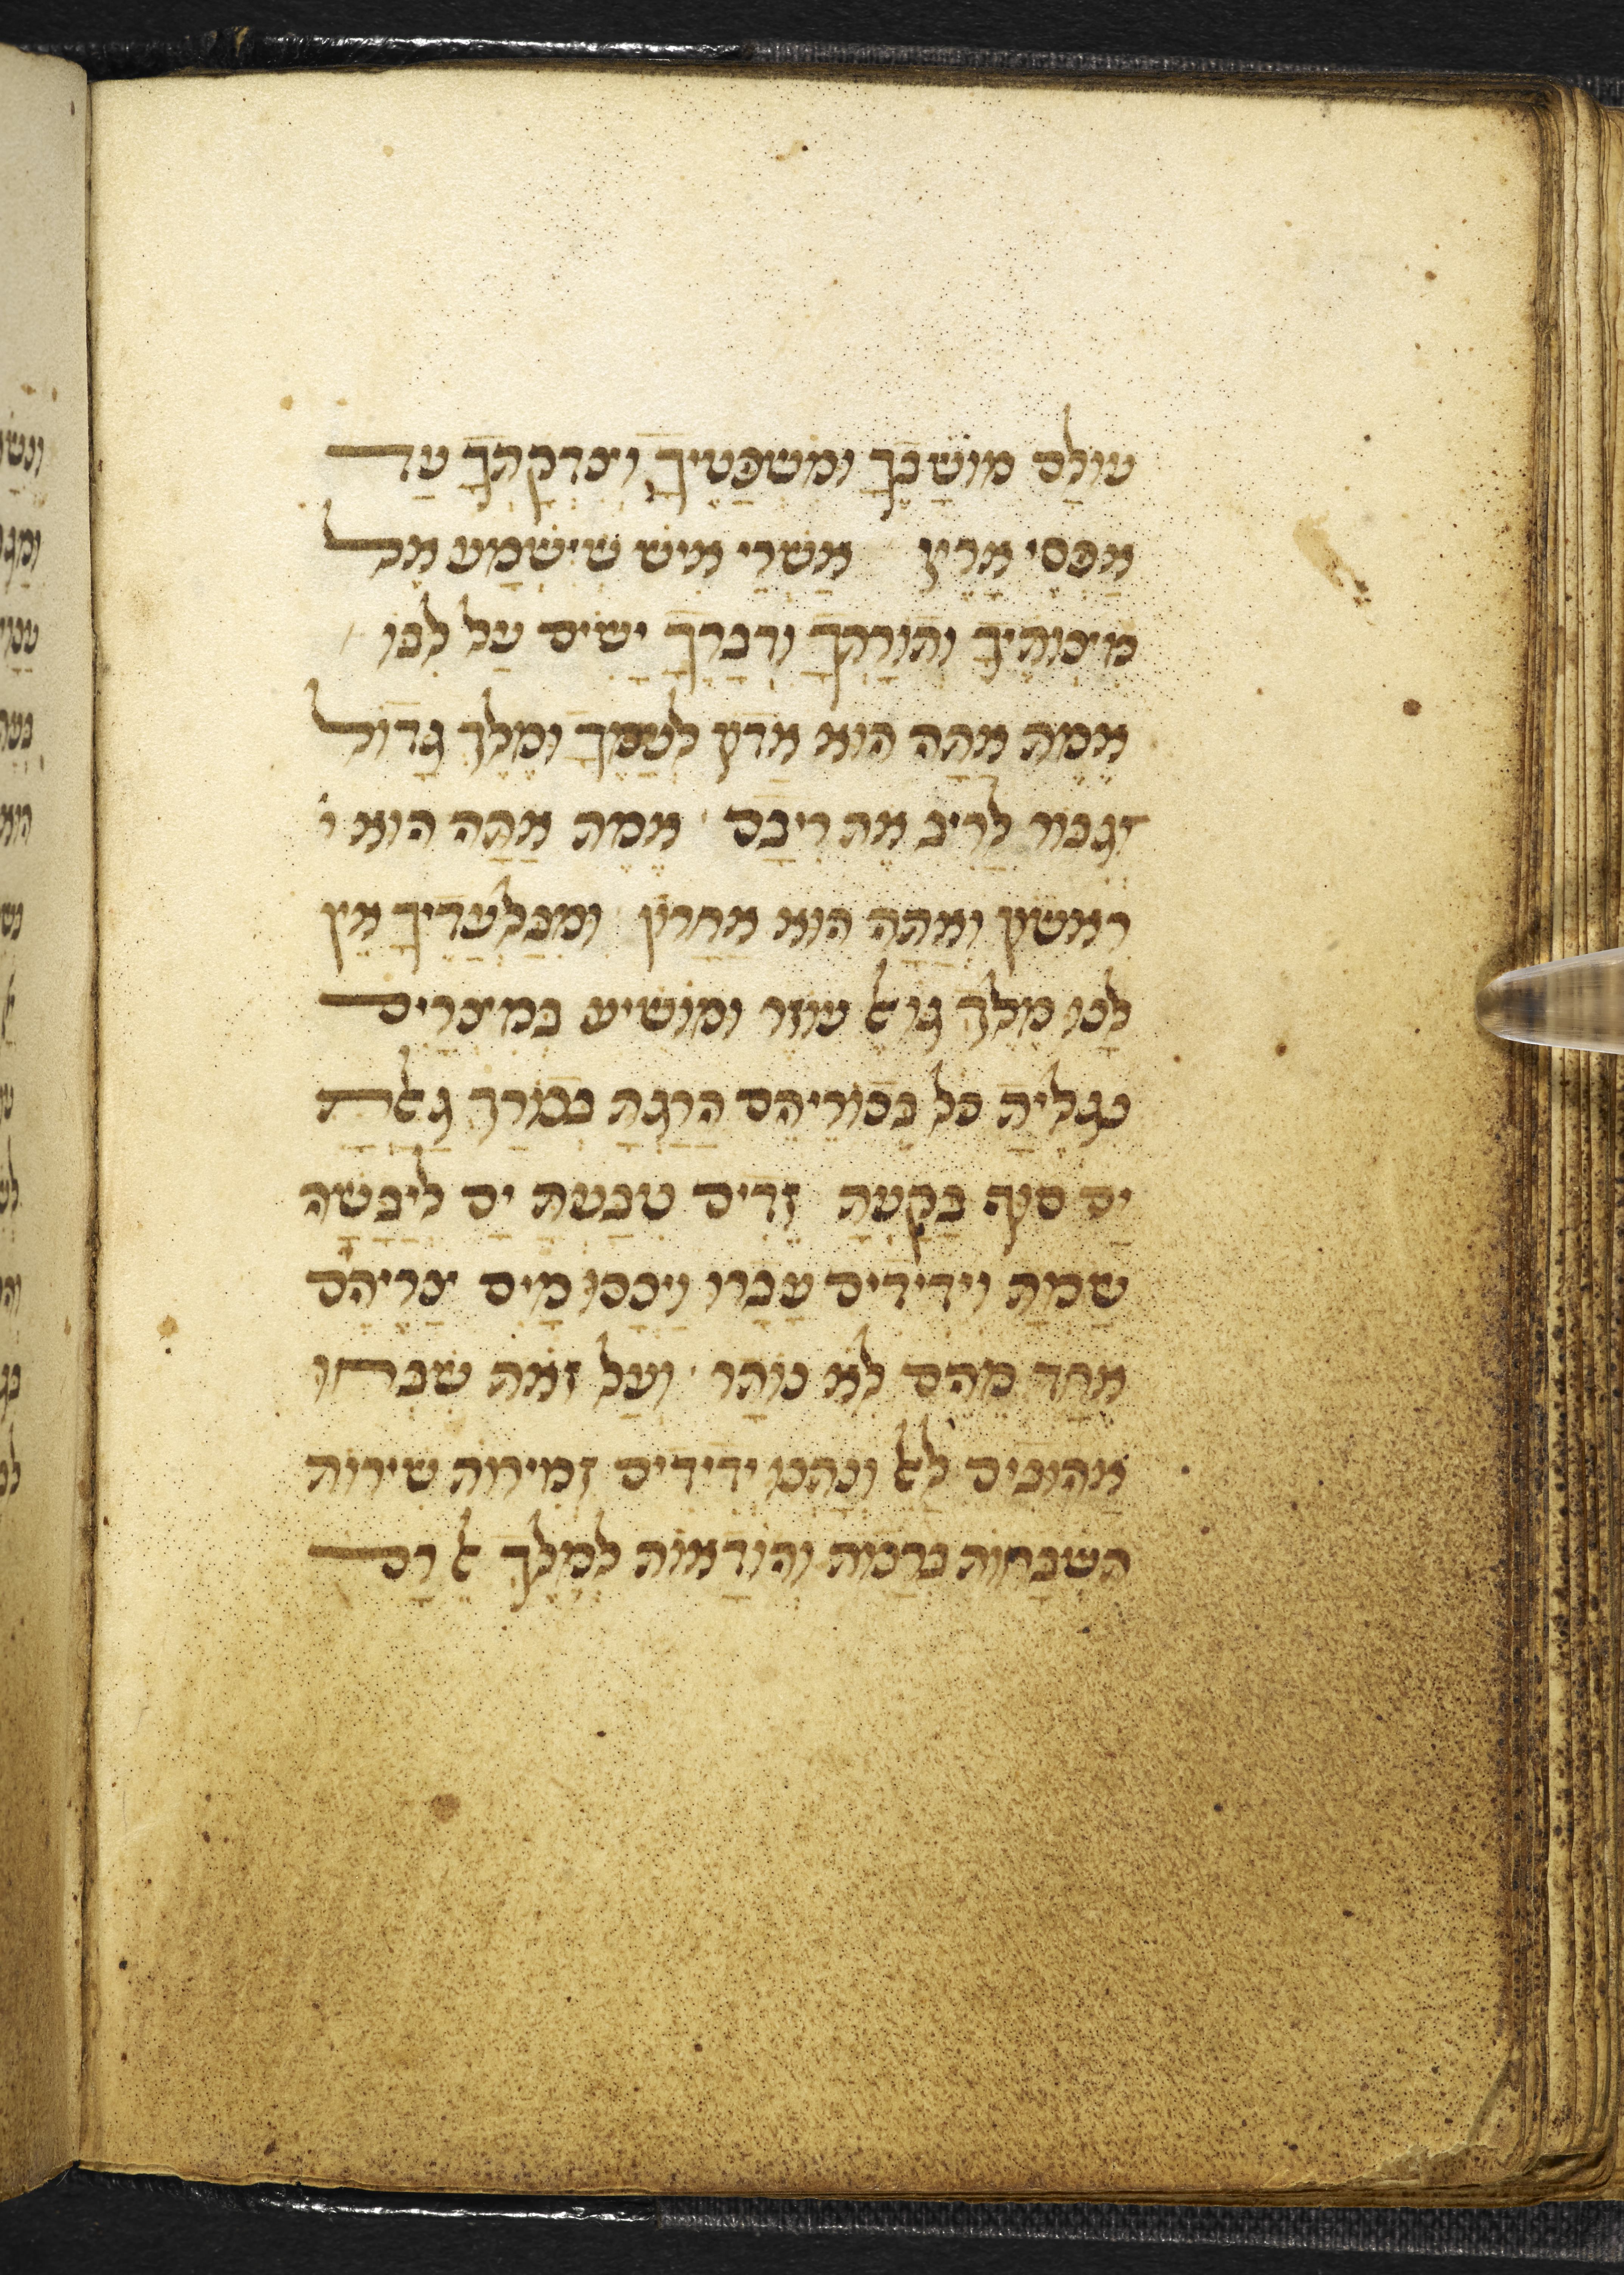 עולם מושבך ומשפטיך וצדקתך עד
אפסי ארץ אשרי איש שישמע אל
מצותיך ותורתך ודברך ישים על לבו
אמת אתה הוא אדון לעמך ומלך גדול
וגבור לריב את ריבם אמת אתה הוא ר
ראשון ואתה הוא אחרון ומבלעדיך אין
לנו מלך גואל עוזר ומושיע במצרים
בגליה כל בכוריהם הרגת בכורך גאלת
ים סוף בקעתה זדים טבעת ים ליבשה
שמת וידידים עברו ויכסו מים צריהם
אחד מהם לא נותר ועל זאת שבחו
אהובים לאל ונתנו ידידים זמירות שירות
תשבחות ברכות והודאות למלך אל רם